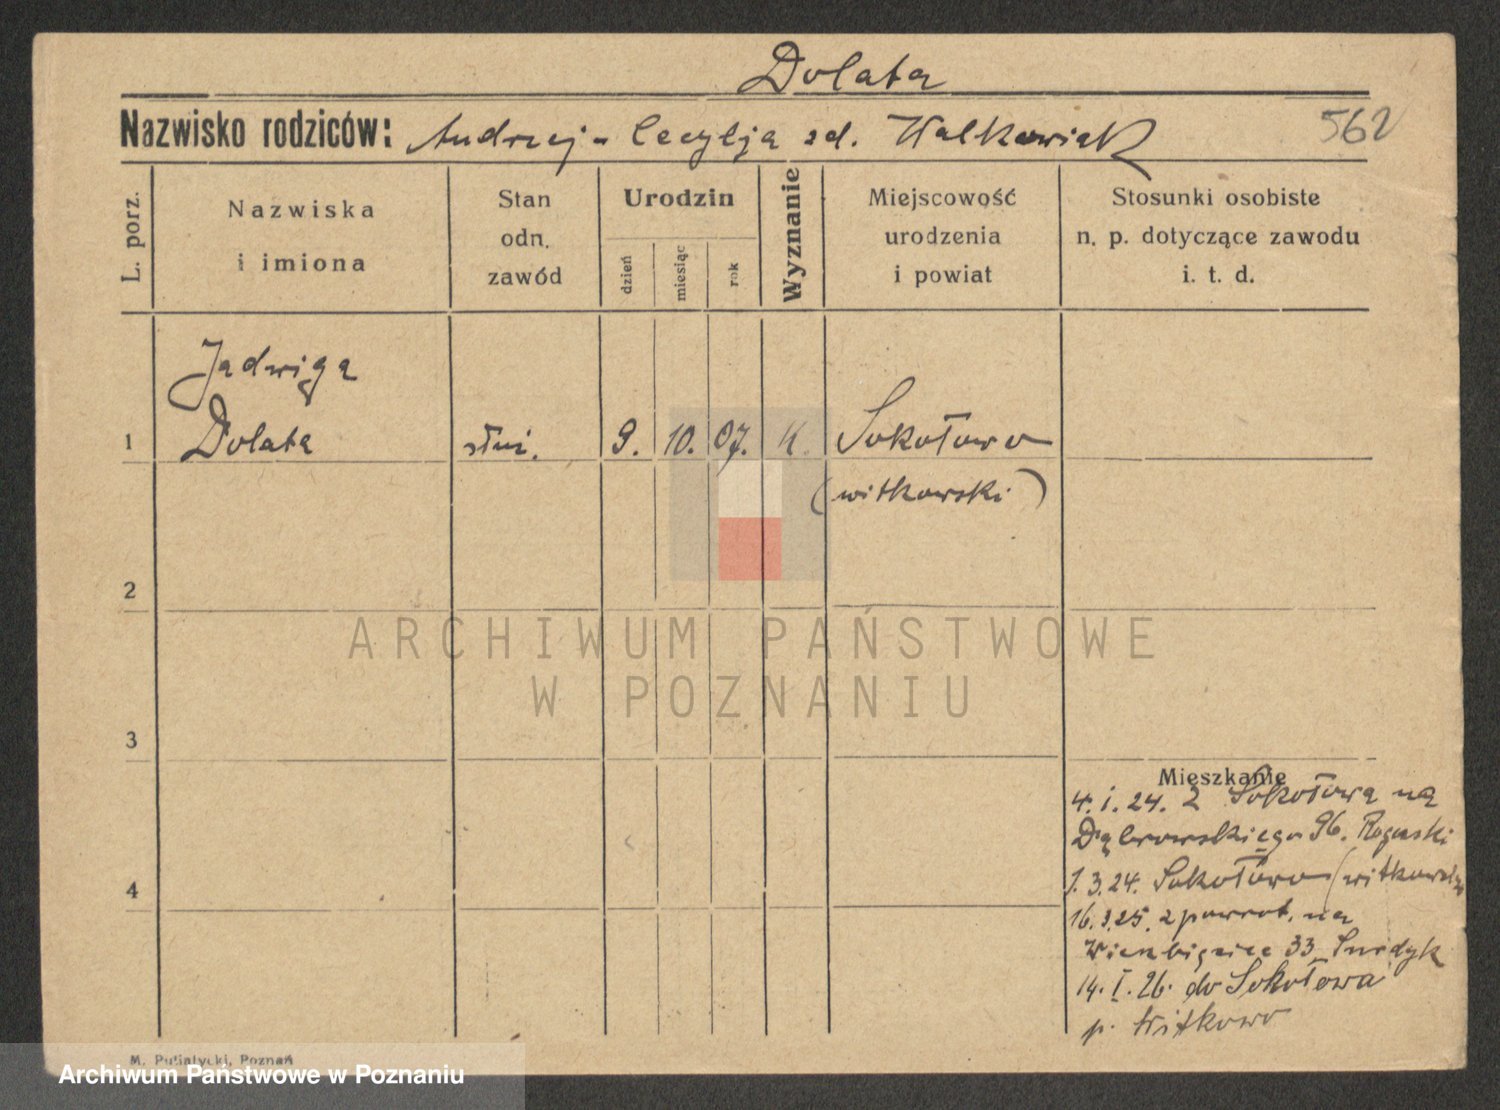 Dolata
Nazwisko rodziców: Andrzej - Cecylja zd. Walkowiak
562
L. porz.
Nazwiska
i imiona
Stan
odn.
zawód
Urodzin
dzień
miesiąc
rok
Wyznanie
Miejscowość
urodzenia
i powiat
Stosunki osobiste
n. p. dotyczące zawodu
i. t. d.
Jadwiga
1 Dolata służ. 9. 10. 07. K. Sokołowo
(witkowski)
2
3
4
Mieszkanie
4. I. 24. z Sokołowa na
Dąbrowskiego 96. Roguski
1. 3. 24. Sokołowo (witkowski)
16. 3. 25. z powrot. na
Wierzbięcice 33 Surdyk
14. I. 26. do Sokołowa
p. Witkowo
M. Putiatycki, Poznań
ARCHIWUM PAŃSTWOWE
W POZNANIU
Archiwum Państwowe w Poznaniu